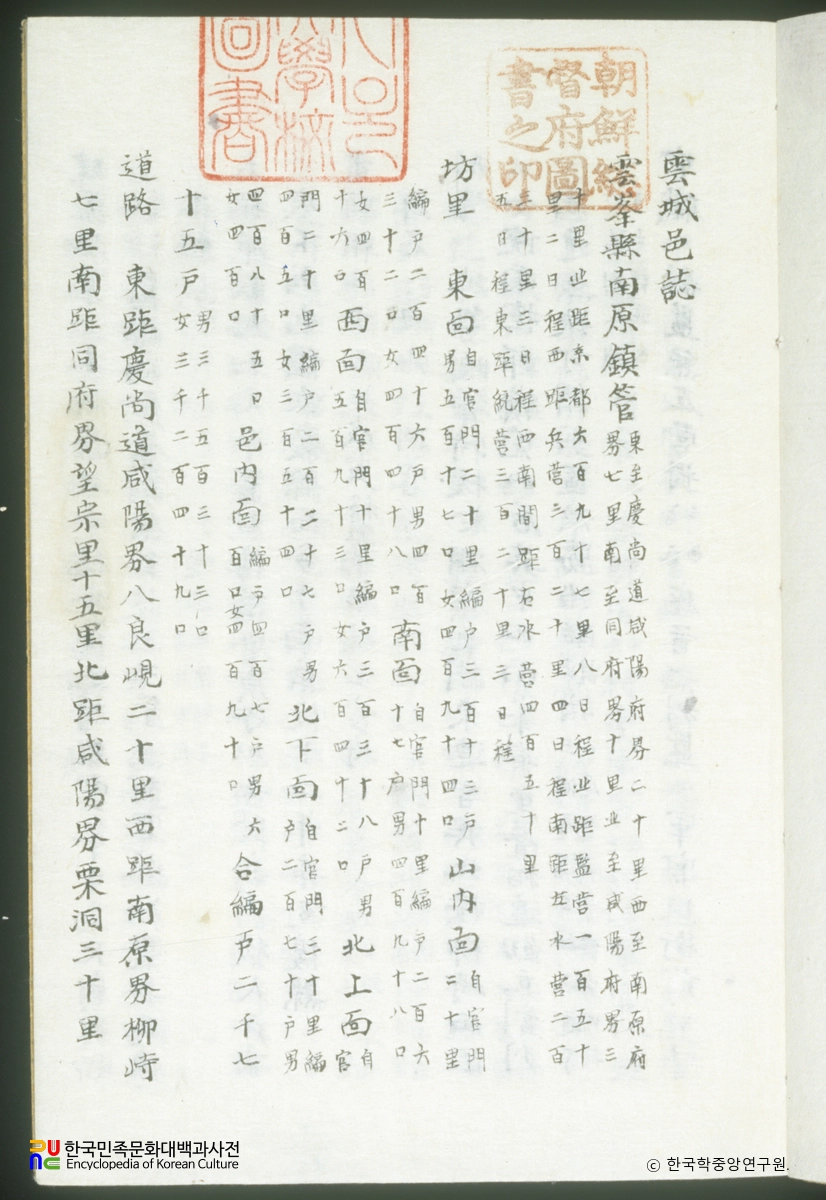 朝鮮總
督府圖
書之印
大學校
圖書
雲城邑誌
雲峯縣南原鎭管 東至慶尚道咸陽府界二十里西至南原府
界七里南至同府界十里北至咸陽府界三
十里北距京都六百九十七里八日程北距監營一百五十
里二日程西距兵營三百二十里四日程南距左水營二百
三十里三日程西南間距右水營四百五十里
五日程東距統營三百二十里三日程
坊里 東面 自官門二十里編戶三百十三戶
男五百十七口女四百九十四口 山内面 自官門
二十里
編戶二百四十六戶男四百
三十二口女四百四十八口 南面 自官門十里編戶二百六
十七戶男四百九十八口
女四百
十六口 西面 自官門十里編戶三百三十八戶男
五百九十三口女六百四十二口 北上面 自
官
門二十里編戶二百二十七戶男
四百五口女三百五十四口 北下面 自官門三十里編
戶二百七十戶男
四百八十五口
女四百口 邑内面 編戶四百七戶男六
百口女四百九十口 合編戶二千七
十五戶 男三千五百三十三口
女三千二百四十九口
道路 東距慶尚道咸陽界八良峴二十里西距南原界柳峙
七里南距同府界望宗里十五里北距咸陽界栗洞三十里
한국민족문화대백과사전
Encyclopedia of Korean Culture
© 한국학중앙연구원.